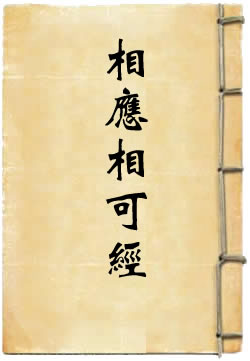 相應相可經